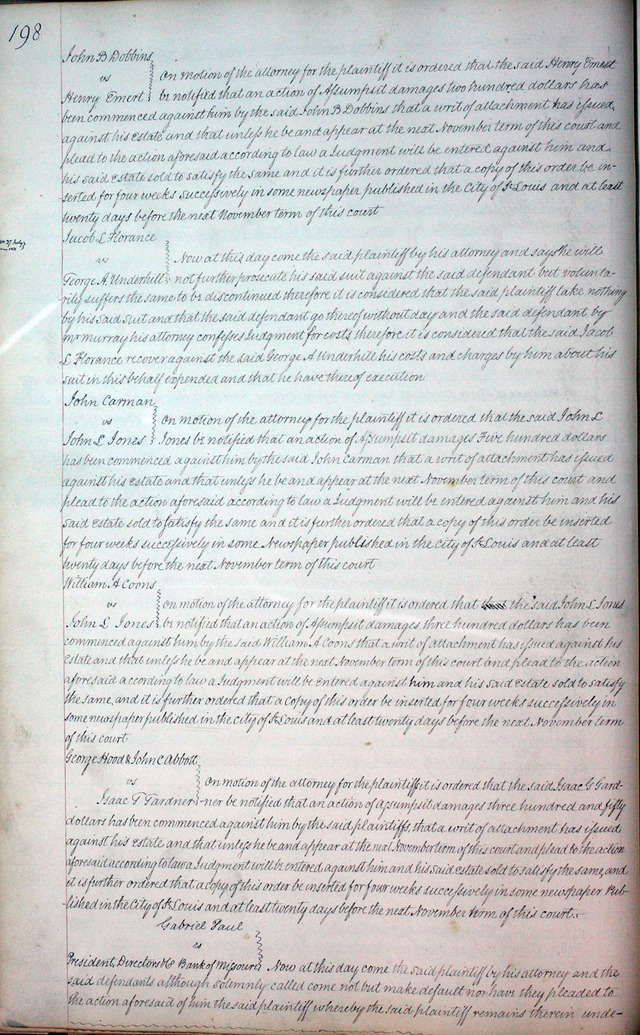 198
John B Dobbins
vs on motion of the attorney for the plaintiff it is ordered that the said Henry Emert
Henry Emert be notified that an action of Assumpsit damages two hundred dollars has
been commenced against him by the said John B Dobbins that a writ of attachment has issued
against his estate and that unless he be and appear at the next November term of this court and
plead to the action aforesaid according to law a Judgment will be entered against him and
his said estate sold to satisfy the same and it is further ordered that a copy of this order be in-
serted for four weeks successively in some newspaper published in the City of St Louis and at least
twenty days before the next November term of this court
Jacob L Florance
vs Now at this day come the said plaintiff by his attorney and says he will
George A. Underhill not further prosecute his said suit against the said defendant but volunta-
rily suffers the same to be discontinued therefore it is considered that the said plaintiff take nothing
by his said suit and that the said defendant go thereof without day and the said defendant by
Mr Murray his attorney confesses Judgment for costs, therefore it is considered that the said Jacob
L Florance recover against the said George A Underhill his costs and charges by him about his
suit in this behalf expended and that he have thereof execution
John Carman
vs on motion of the attorney for the plaintiff it is ordered that the said John L
John L Jones Jones be notified that an action of Assumpsit damages Five hundred dollars
has been commenced against him by the said John Carman that a writ of attachment has issued
against his estate and that unless he be and appear at the next November term of this court and
plead to the action aforesaid according to law a Judgment will be entered against him and his
said estate sold to satisfy the same and it is further ordered that a copy of this order be inserted
for four weeks successively in some Newspaper published in the City of St Louis and at least
twenty days before the next November term of this court
William A Coons
vs on motion of the attorney for the plaintiff it is ordered that the said John L Jones
John L Jones be notified that an action of Assumpsit damages three hundred dollars has been
commenced against him by the said William A Coons that a writ of attachment has issued against his
estate and that unless he be and appear at the next November term of this court and plead to the action
aforesaid according to law a Judgment will be entered against him and his said estate sold to satisfy
the same, and it is further ordered that a copy of this order be inserted for four weeks successively in
some newspaper published in the city of St Louis and at least twenty days before the next November term
of this court
George Hood & John C Abbott
vs on motion of the attorney for the plaintiff it is ordered that the said Isaac G Gard-
Isaac T Gardner ner be notified that an action of assumpsit damages three hundred and fifty
dollars has been commenced against him by the said plaintiffs, that a writ of attachment has issued
against his estate and that unless he be and appear at the next November term of this court and plead to the action
aforesaid according to law a Judgment will be entered against him and his said estate sold to satisfy the same, and
it is further ordered that a copy of this order be inserted for four weeks successively in some newspaper Pub-
lished in the City of St Louis and at least twenty days before the next November term of this court.
Gabriel Paul
vs
President, Directors &c Bank of Missouri Now at this day come the said plaintiff by his attorney and the
said defendants although solemnly called come not but make default nor have they pleaded to
the action aforesaid of him the said plaintiff whereby the said plaintiff remains therein unde-